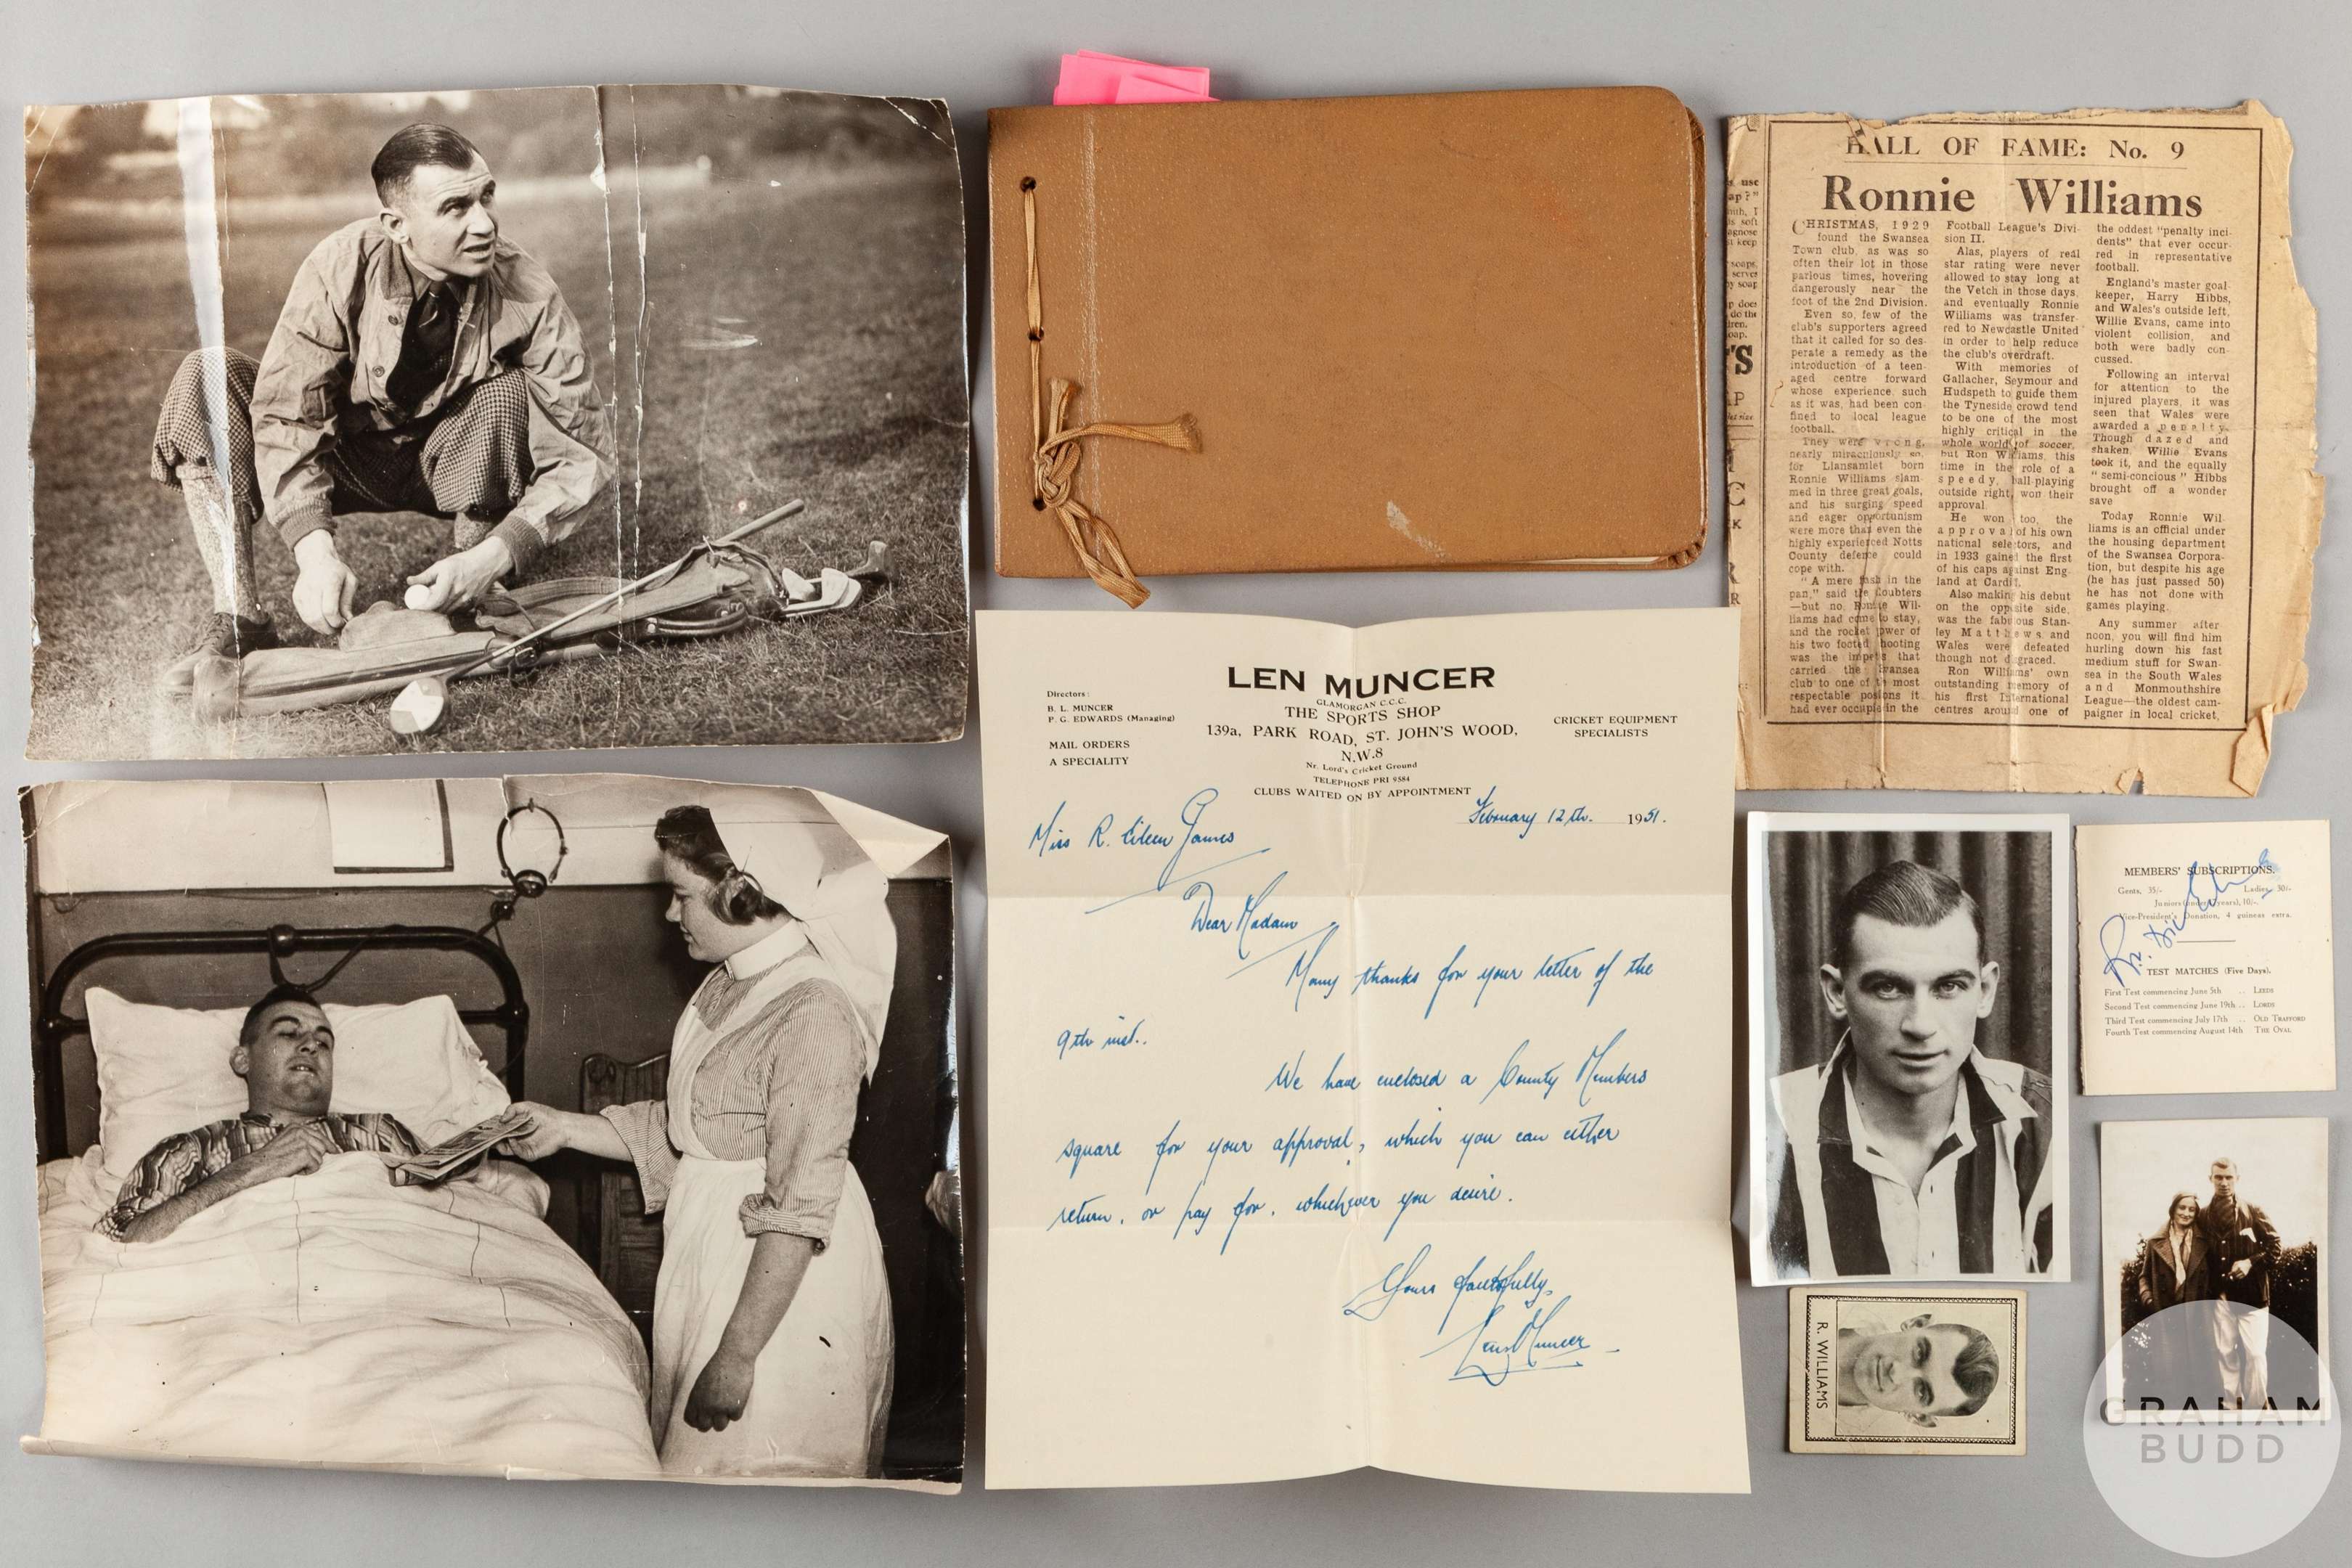 HALL OF FAME: No. 9
Ronnie Williams
CHRISTMAS, 1929
found the Swansea
Town club, as was so
often their lot in those
parlous times, hovering
dangerously near the
foot of the 2nd Division.
Even so, few of the
club's supporters agreed
that it called for so des-
perate a remedy as the
introduction of a teen-
aged centre forward
whose experience, such
as it was, had been con-
fined to local league
football.
They were wrong,
nearly miraculously so,
for Llansamlet born
Ronnie Williams slam-
med in three great goals,
and his surging speed
and eager opportunism
were more than even the
highly experienced Notts
County defence could
cope with.
"A mere flash in the
pan," said the doubters
—but no. Ronnie Wil-
liams had come to stay,
and the rocket power of
his two footed shooting
was the impetus that
carried the Swansea
club to one of the most
respectable positions it
had ever occupied in the
Football League's Divi-
sion II.
Alas, players of real
star rating were never
allowed to stay long at
the Vetch in those days,
and eventually Ronnie
Williams was transfer-
red to Newcastle United
in order to help reduce
the club's overdraft.
With memories of
Gallacher, Seymour and
Hudspeth to guide them
the Tyneside crowd tend
to be one of the most
highly critical in the
whole world of soccer,
but Ron Williams, this
time in the role of a
speedy, ball-playing
outside right, won their
approval.
He won too, the
approval of his own
national selectors, and
in 1933 gained the first
of his caps against Eng-
land at Cardiff.
Also making his debut
on the opposite side,
was the fabulous Stan-
ley Matthews and
Wales were defeated
though not disgraced.
Ron Williams' own
outstanding memory of
his first International
centres around one of
the oddest "penalty inci-
dents" that ever occur-
red in representative
football.
England's master goal-
keeper, Harry Hibbs,
and Wales's outside left,
Willie Evans, came into
violent collision, and
both were badly con-
cussed.
Following an interval
for attention to the
injured players, it was
seen that Wales were
awarded a penalty.
Though dazed and
shaken, Willie Evans
took it, and the equally
"semi-concious" Hibbs
brought off a wonder
save
Today Ronnie Wil-
liams is an official under
the housing department
of the Swansea Corpora-
tion, but despite his age
(he has just passed 50)
he has not done with
games playing.
Any summer after-
noon, you will find him
hurling down his fast
medium stuff for Swan-
sea in the South Wales
and Monmouthshire
League—the oldest cam-
paigner in local cricket,
Directors:
B. L. MUNCER
P. G. EDWARDS (Managing)
MAIL ORDERS
A SPECIALITY
LEN MUNCER
GLAMORGAN C.C.C.
THE SPORTS SHOP
139a, PARK ROAD, ST. JOHN'S WOOD,
N.W.8
Nr. Lord's Cricket Ground
TELEPHONE PRI 9584
CLUBS WAITED ON BY APPOINTMENT
CRICKET EQUIPMENT
SPECIALISTS
February 12th. 1951.
Miss R. Eileen James
Dear Madam
Many thanks for your letter of the
9th inst..
We have enclosed a County Members
square for your approval, which you can either
return, or pay for, whichever you desire.
Yours faithfully,
Len Muncer
MEMBERS' SUBSCRIPTIONS.
Gents, 35/- Ladies, 30/-
Juniors (under years), 10/-.
Vice-President's Donation, 4 guineas extra.
TEST MATCHES (Five Days).
First Test commencing June 5th .. LEEDS
Second Test commencing June 19th .. LORDS
Third Test commencing July 17th .. OLD TRAFFORD
Fourth Test commencing August 14th THE OVAL
R. WILLIAMS
GRAHAM
BUDD